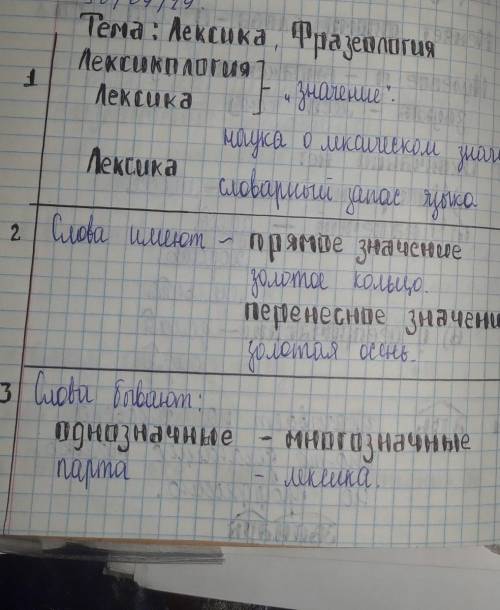 Тема: Лексика, Фразеология
1 Лексикология
Лексика - „значение".
наука о лексическом
Лексика
словарный запас языка
2 Слова имеют - прямое значение
золотое кольцо.
перенесное
золотая осень.
3 Слова бывают:
однозначные - многозначные
парта - лексика.